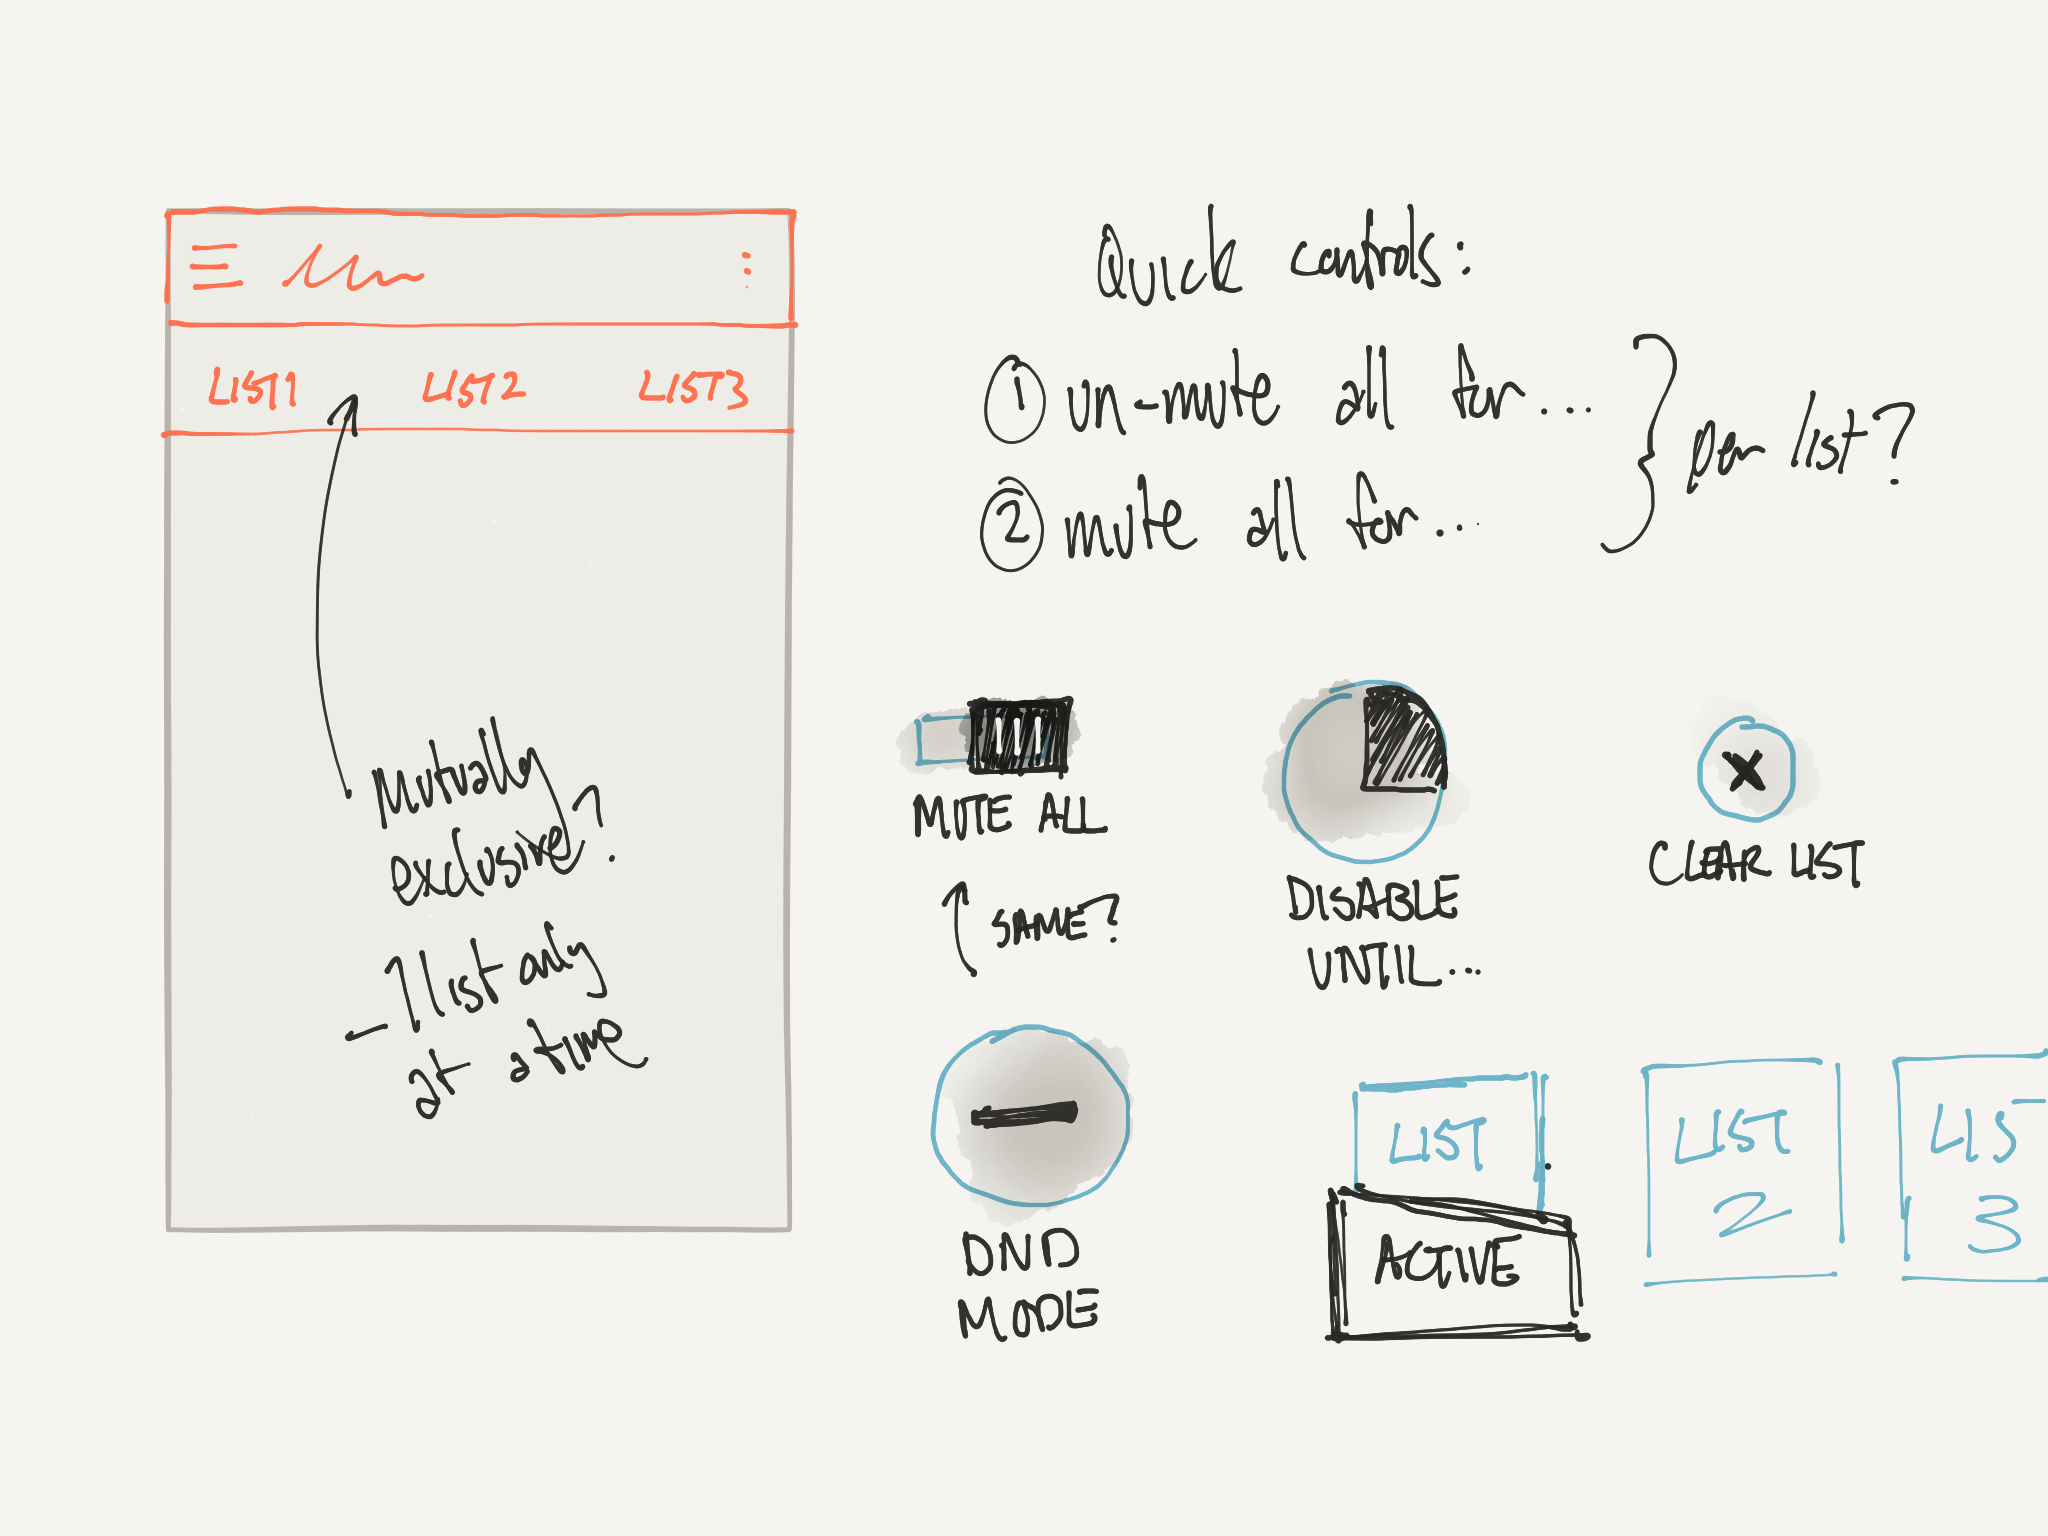 LIST1 LIST2 LIST3
Mutually
exclusive?
- 1 list only
at a time
Quick controls:
1 un-mute all for...
2 mute all for...
per list?
MUTE ALL
SAME?
DISABLE
UNTIL...
CLEAR LIST
DND
MODE
LIST
ACTIVE
LIST
2
LIST
3